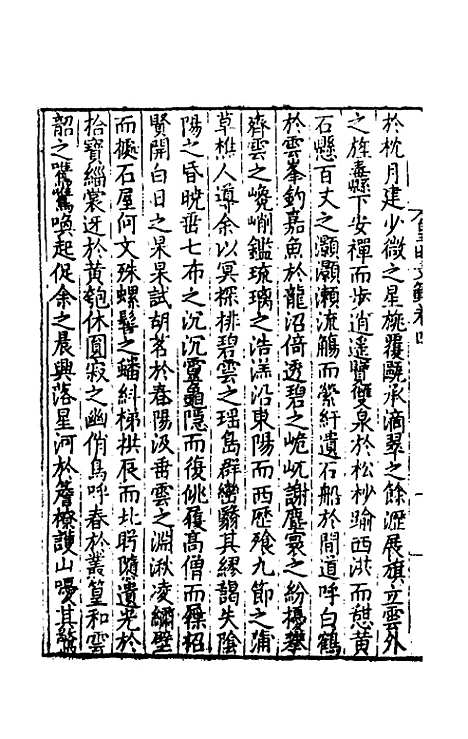 於枕月建少微之星旐覆甌承滴翠之餘瀝展旗立雲外
之旌毒縣下安禪而步逍遙覽雙泉於松杪踰西洪而憇黄
石懸百丈之灝灝瀨流觴而縈紆遺石船於間道呼白鶴
於雲峯釣嘉魚於龍沼倚透碧之峗屼謝塵寰之紛擾攀
齊雲之巉峭鑑琉璃之浩溔沿東陽而西歷飱九節之蒲
草樵人導余以冥探排碧雲之瑶島群巒翳其繆轕失陰
陽之昏曉垂七布之沉沉靈龜隱而復佻履髙僧而屧招
賢開白日之杲杲試胡茗於春陽汲番雲之淵湫凌繡壁
而礙石屋何文殊螺髻之蟠糾梯拱辰而北眄隨遺光於
抬寶緇裳迓於黄麭休圓寂之幽俏鳥呼春於叢篁和雲
韶之嘐嘐喚起促余之晨興落星河於簷橑謖山㬅其
皇明文範卷四